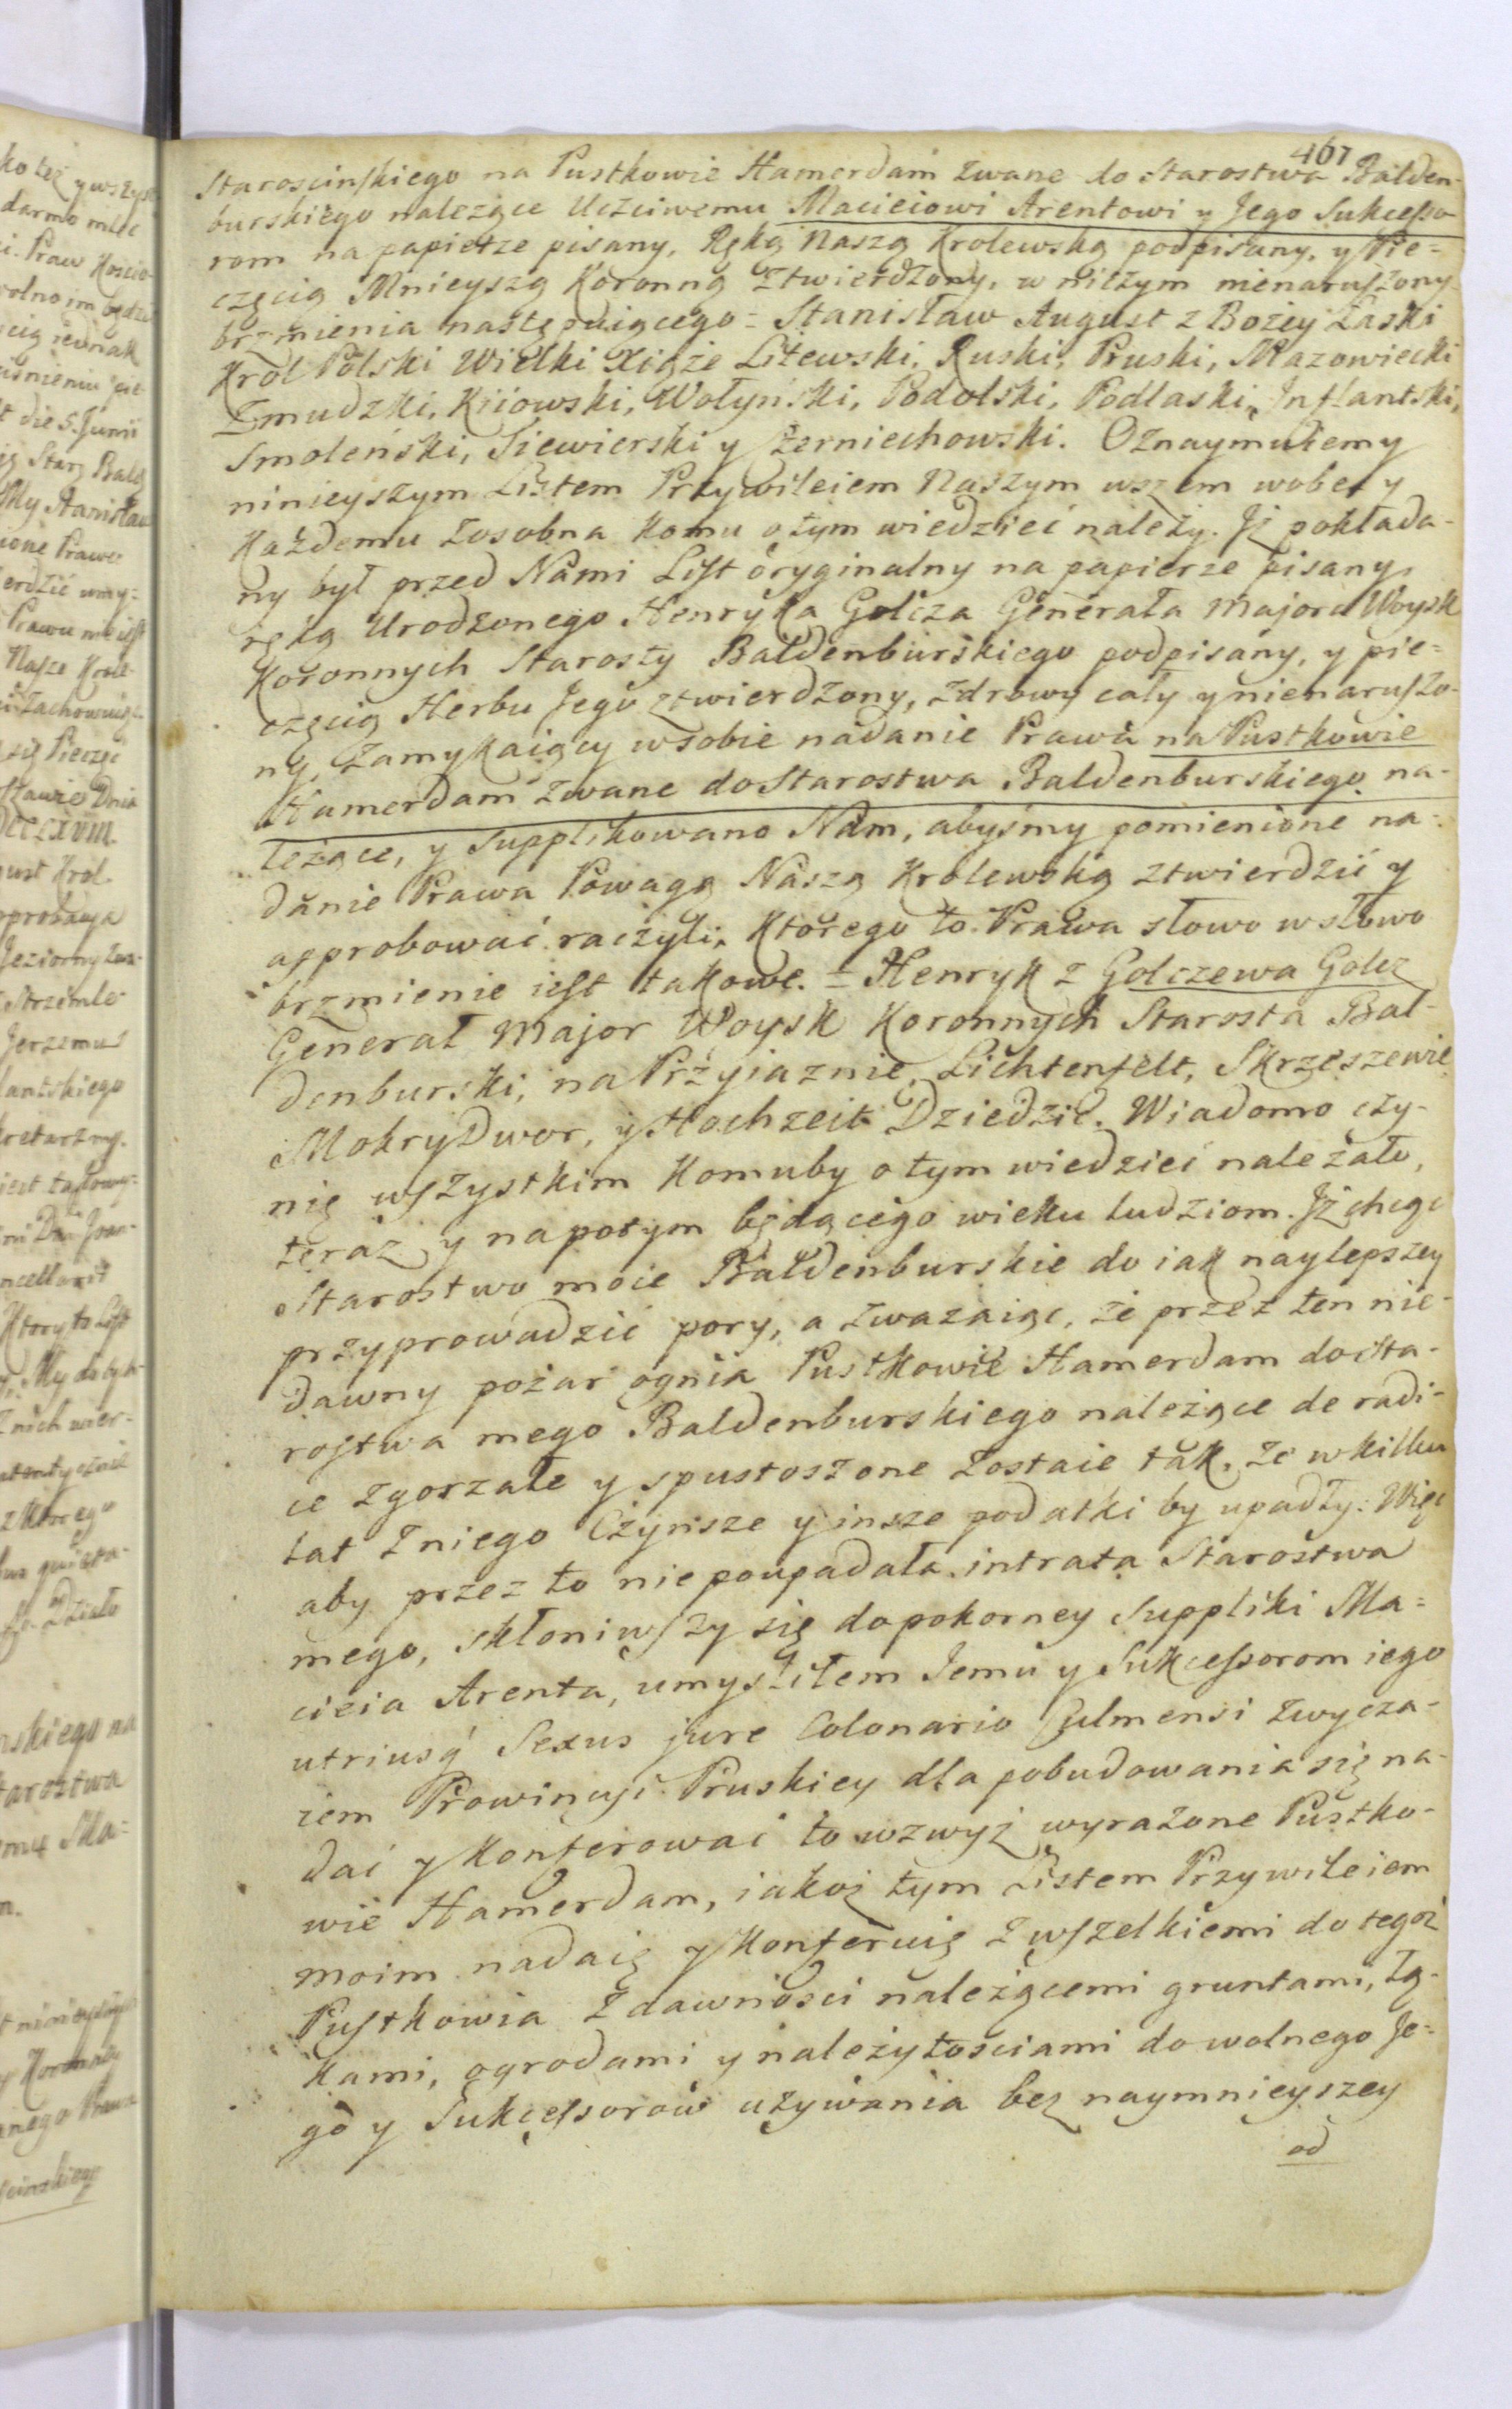 467
Staroscinskiego na Pustkowie Hamerdam zwane do Starostwa Balden-
burskiego należące Uczciwemu Macieiowi Arentowi y Jego Sukcesso-
rom na papierze pisany, Ręką Naszą Krolewską podpisany, y Pie-
częcią Mnieyszą Koronną ztwierdzony, w niczym nienaruszony
brzmienia następuiącego = Stanisław August z Bożey Łaski
Krol Polski Wielki Xiąże Litewski, Ruski, Pruski, Mazowiecki
Zmudzki, Kiiowski, Wołyński, Podolski, Podlaski, Inflantski,
Smoleński, Siewierski y Czerniechowski. Oznaymuiemy
ninieyszym Listem Przywileiem Naszym wszem wobec y
Każdemu zosobna komu o tym wiedzieć należy. Jż pokłada-
ny był przed Nami List oryginalny na papierze pisany
ręką Urodzonego Henryka Golcza Generała Majora Woysk
Koronnych Starosty Baldenburskiego podpisany, y pie-
częcią Herbu Jego ztwierdzony, zdrowy cały y nienaruszo-
ny, zamykaiący w sobie nadanie Prawa na Pustkowie
Hamerdam zwane do Starostwa Baldenburskiego na-
leżące, y supplikowano Nam, abyśmy pomienione na-
danie Prawa Powagą Naszą Krolewską ztwierdzić y
approbować raczyli, Ktorego to Prawa słowo w słowo
brzmienie iest takowe. = Henryk z Golczewa Golcz
Generał Major Woysk Koronnych Starosta Bal-
denburski, na Przyiaznie, Lichtenfelt, Skrzeszewie
Mokry Dwor, y Hochzeit Dziedzic. Wiadomo czy-
nię wszystkim komuby o tym wiedzieć należało,
teraz y napotym będącego wieku ludziom. Jż chcąc
Starostwo moie Baldenburskie do iak naylepszey
przyprowadzić pory, a zwazaiąc, że przez ten nie-
dawny pożar ognia Pustkowie Hamerdam do Sta-
rostwa mego Baldenburskiego należące de radi-
ce zgorzałe y spustoszone zostaie tak, że w kilku
lat z niego Czynsze y insze podatki by upadły: Więc
aby przez to niepoupadała intrata Starostwa
mego, skłoniwszy się do pokorney Suppliki Ma-
cieia Arenta, umyśliłem Jemu y Sukcessorom iego
utriusq Sexus jure Colonario Culmensi zwycza-
iem Prowincyi Pruskiey dla pobudowania się na-
dać y Konferować to wzwyż wyrażone Pustko-
wie Hamerdam, iakoż tym Listem Przywileiem
moim nadaię y Konferuię z wszelkiemi do tegoż
Pustkowia z dawności należącemi gruntami, łą-
kami, ogrodami y należytościami do wolnego Je-
go y Sukcessorow używania bez naymnieyszey
od